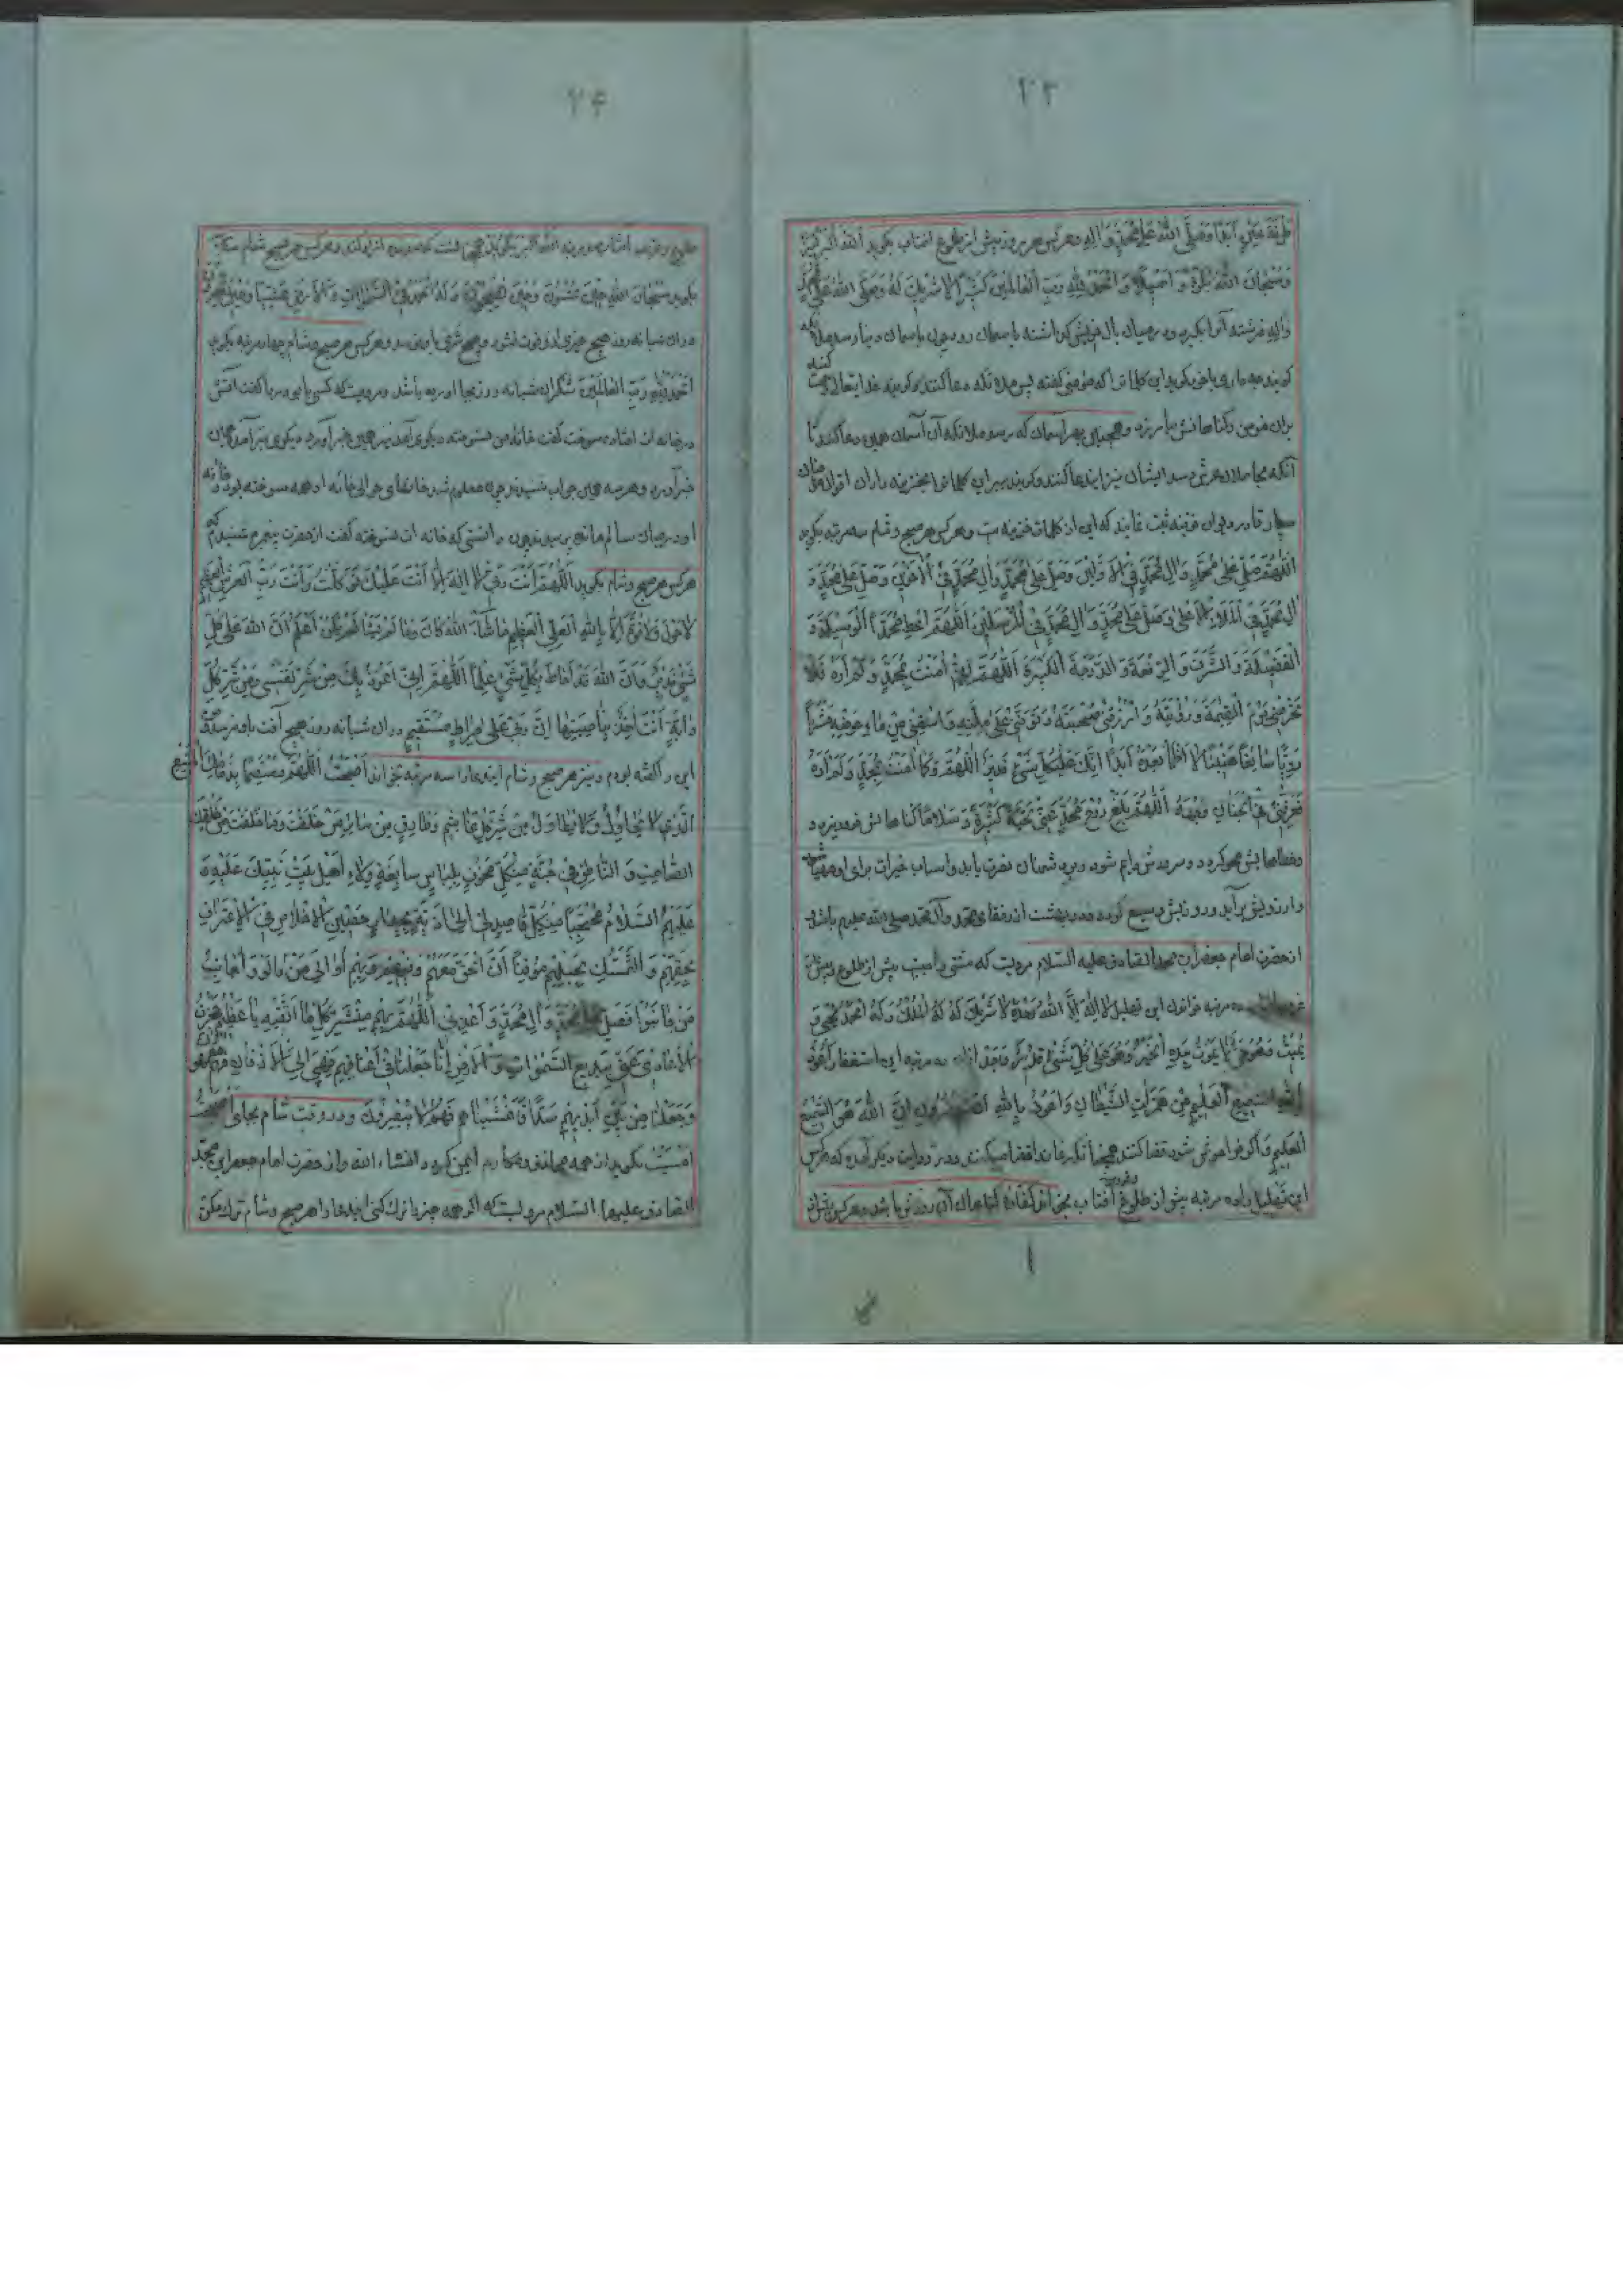 ۲۳
طرفة عین ابدا وصلی الله علی محمد و اله و هر کس هر روز پیش از طلوع افتاب بگوید الله اکبر
وَسُبْحانَ اللهِ بُکْرَةً وَ اَصیلاً وَ الْحَمْدُ لِلّهِ رَبِّ الْعالَمینَ کَثیراً لا شَریكَ لَهُ وَصَلَّی اللهُ عَلی
واله فرشته آنرا بگیرد و درمیان بال خویش گذاشته باسمان رود چون باسمان دنیا رسد ملائکه
گویند چه داری با خود گوید این کلماتی که مؤمنی گفته پس ملائکه دعا کنند و گویند خدایتعالی رحمت کند
بران مؤمن و گناهانش بیامرزد و همچنین بهر آسمان که برسد ملائکه آن آسمان همین دعا کنند تا
آنکه بحاملان عرش رسد ایشان نیز این دعا کنند و گویند ببر این کلماترا بخزینه داران اقوال مؤمنان
بسپار تا در دیوان خزینه ثبت نمایند که این از کلمات خزینه است و هر کس هر صبح و شام سه مرتبه بگوید
اَللّهُمَّ صَلِّ عَلی مُحَمَّدٍ وَ الِ مُحَمَّدٍ فِی الْاَوَّلینَ وَصَلِّ عَلی مُحَمَّدٍ وَالِ مُحَمَّدٍ فِی الْاخِرینَ وَصَلِّ عَلی مُحَمَّدٍ وَ
الِ مُحَمَّدٍ فِی الْمَلَاءِ الْاَعْلی وَصَلِّ عَلی مُحَمَّدٍ وَ الِ مُحَمَّدٍ فِی الْمُرْسَلینَ اَللّهُمَّ اَعْطِ مُحَمَّداً الْوَسیلَةَ وَ
الْفَضیلَةَ وَ الشَّرَفَ وَ الرِّفْعَةَ وَ الدَّرَجَةَ الْکَبیرَةَ اَللّهُمَّ اِنّی امَنْتُ بِمُحَمَّدٍ وَ لَمْ اَرَهُ فَلا
تَحْرِمْنی یَوْمَ الْقِیمَةِ رُؤْیَتَهُ وَ ارْزُقْنی صُحْبَتَهُ وَ تَوَفَّنی عَلی مِلَّتِهِ وَ اسْقِنی مِنْ حَوْضِهِ مَشْرَباً
رَوِیّاً سائِغاً هَنیئاً لا اَظْمَأُ بَعْدَهُ اَبَداً اِنَّكَ عَلی کُلِّ شَیْءٍ قَدیرٌ اَللّهُمَّ وَ کَما امَنْتُ بِمُحَمَّدٍ وَ لَمْ اَرَهُ
فَعَرِّفْنی فِی الْجِنانِ وَجْهَهُ اَللّهُمَّ بَلِّغْ رُوحَ مُحَمَّدٍ عَنّی تَحِیَّةً کَثیرَةً وَ سَلاماً گناهانش فرو ریزد و
وخطاهایش محو گردد و سرورش دایم شود و بر دشمنان نصرت یابد و اسباب خیرات برای او مهیا
وارزویش برآید و روزیش وسیع گردد و در بهشت از رفقای محمد و آل محمد صلی الله علیهم باشد و
از حضرت امام جعفر ابن محمد الصادق علیه السلام مرویست که سنتی واجبست پیش از طلوع و پیش از
ده مرتبه خواندن این تهلیل لا اِلهَ اِلّا اللهُ وَحْدَهُ لا شَریكَ لَهُ لَهُ الْمُلْكُ وَ لَهُ الْحَمْدُ یُحْیی وَ
یُمیتُ وَ هُوَ حَیٌّ لا یَمُوتُ بِیَدِهِ الْخَیْرُ وَ هُوَ عَلی کُلِّ شَیْءٍ قَدیرٌ و بعد از آن ده مرتبه این استغفار اَعُوذُ
بِاللهِ السَّمیعِ الْعَلیمِ مِنْ هَمَزاتِ الشَّیاطینِ وَ اَعُوذُ بِاللهِ اَنْ یَحْضُرُونِ اِنَّ اللهَ هُوَ السَّمیعُ
الْعَلیمُ و اگر فراموش شود قضا کنند همچنانکه نماز را قضا میکنند و در روایت دیگر آمده که هر کس
این تهلیل را ده مرتبه پیش از طلوع و غروب آفتاب بخواند کفاره گناهان آن روزش باشد و هر کس پیش از
۲۴
طلوع و غروب آفتاب الله اکبر و هر کس هر صبح و شام
بگوید سُبْحانَ اللهِ حینَ تُمْسُونَ وَ حینَ تُصْبِحُونَ وَ لَهُ الْحَمْدُ فِی السَّمواتِ وَ الْاَرْضِ وَ عَشِیّاً وَ حینَ تُظْهِرُونَ
دران شبانه روز هیچ خیری از او فوت نشود و هیچ شری باو نرسد و هر کس هر صبح و شام چهار مرتبه بگوید
اَلْحَمْدُ لِلّهِ رَبِّ الْعالَمینَ شکر ان شبانه روز بجا اورده باشد و مرویست که کسی با گفت آتش
در خانه ات افتاده سوخت گفت خانه من نسوخته دیگری آمد نیز همین خبر آورد دیگری نیز آمد همان
خبر آورد و هر سه همین جواب شنیدند چون معلوم شد خانهای حوالی خانه او همه سوخته بود و خانه
او درمیان سالم مانده پرسیدند چون دانستی که خانه ات نسوخته گفت از حضرت پیغمبر شنیدم که
هر کس هر صبح و شام بگوید اَللّهُمَّ اَنْتَ رَبّی لا اِلهَ اِلّا اَنْتَ عَلَیْكَ تَوَکَّلْتُ وَ اَنْتَ رَبُّ الْعَرْشِ الْعَظیمِ
لا حَوْلَ وَ لا قُوَّةَ اِلّا بِاللهِ الْعَلِیِّ الْعَظیمِ ما شاءَ اللهُ کانَ وَ ما لَمْ یَشَأْ لَمْ یَکُنْ اَعْلَمُ اَنَّ اللهَ عَلی کُلِّ
شَیْءٍ قَدیرٌ وَ اَنَّ اللهَ قَدْ اَحاطَ بِکُلِّ شَیْءٍ عِلْماً اَللّهُمَّ اِنّی اَعُوذُ بِكَ مِنْ شَرِّ نَفْسی وَ مِنْ شَرِّ کُلِّ
دابَّةٍ اَنْتَ اخِذٌ بِناصِیَتِها اِنَّ رَبّی عَلی صِراطٍ مُسْتَقیمٍ دران شبانه روز هیچ آفت باو نرسد و من
این را گفته بودم و نیز هر صبح و شام این دعا را سه مرتبه بخواند اَصْبَحْتُ اَللّهُمَّ مُعْتَصِماً بِذِمامِكَ الْمَنیعِ
الَّذی لا یُحاوَلُ وَ لا یُطاوَلُ مِنْ شَرِّ کُلِّ غاشِمٍ وَ طارِقٍ مِنْ سائِرِ مَنْ خَلَقْتَ وَ ما خَلَقْتَ مِنْ خَلْقِكَ
الصّامِتِ وَ النّاطِقِ فی جُنَّةٍ مِنْ کُلِّ مَخُوفٍ بِلِباسٍ سابِغَةٍ وَلاءِ اَهْلِ بَیْتِ نَبِیِّكَ عَلَیْهِ وَ
عَلَیْهِمُ السَّلامُ مُحْتَجِباً مِنْ کُلِّ قاصِدٍ لی اِلی اَذِیَّةٍ بِجِدارٍ حَصینِ الْاِخْلاصِ فِی الْاِعْتِرافِ
بِحَقِّهِمْ وَ التَّمَسُّكِ بِحَبْلِهِمْ مُوقِناً اَنَّ الْحَقَّ مَعَهُمْ وَ فیهِمْ اُوالی مَنْ والَوْا وَ اُجانِبُ
مَنْ جانَبُوا فَصَلِّ عَلی مُحَمَّدٍ وَ الِ مُحَمَّدٍ وَ اَعِذْنی اَللّهُمَّ بِهِمْ مِنْ شَرِّ کُلِّ ما اَتَّقیهِ یا عَظیمُ حَجَزْتُ
الْاَعادِیَ عَنّی بِبَدیعِ السَّمواتِ وَ الْاَرْضِ اِنّا جَعَلْنا فی اَعْناقِهِمْ فَهِیَ اِلَی الْاَذْقانِ فَهُمْ
وَ جَعَلْنا مِنْ بَیْنِ اَیْدیهِمْ سَدّاً فَاَغْشَیْناهُمْ فَهُمْ لا یُبْصِرُونَ و در وقت شام بجای اَصْبَحْتُ
اَمْسَیْتُ بگوید از همه مخاوف و مکاره ایمن گردد انشاء الله و از حضرت امام جعفر ابن محمد
الصادق علیهما السلام مرویست که اگر همه چیز را ترك کنی این دعا را هر صبح و شام ترك مکن